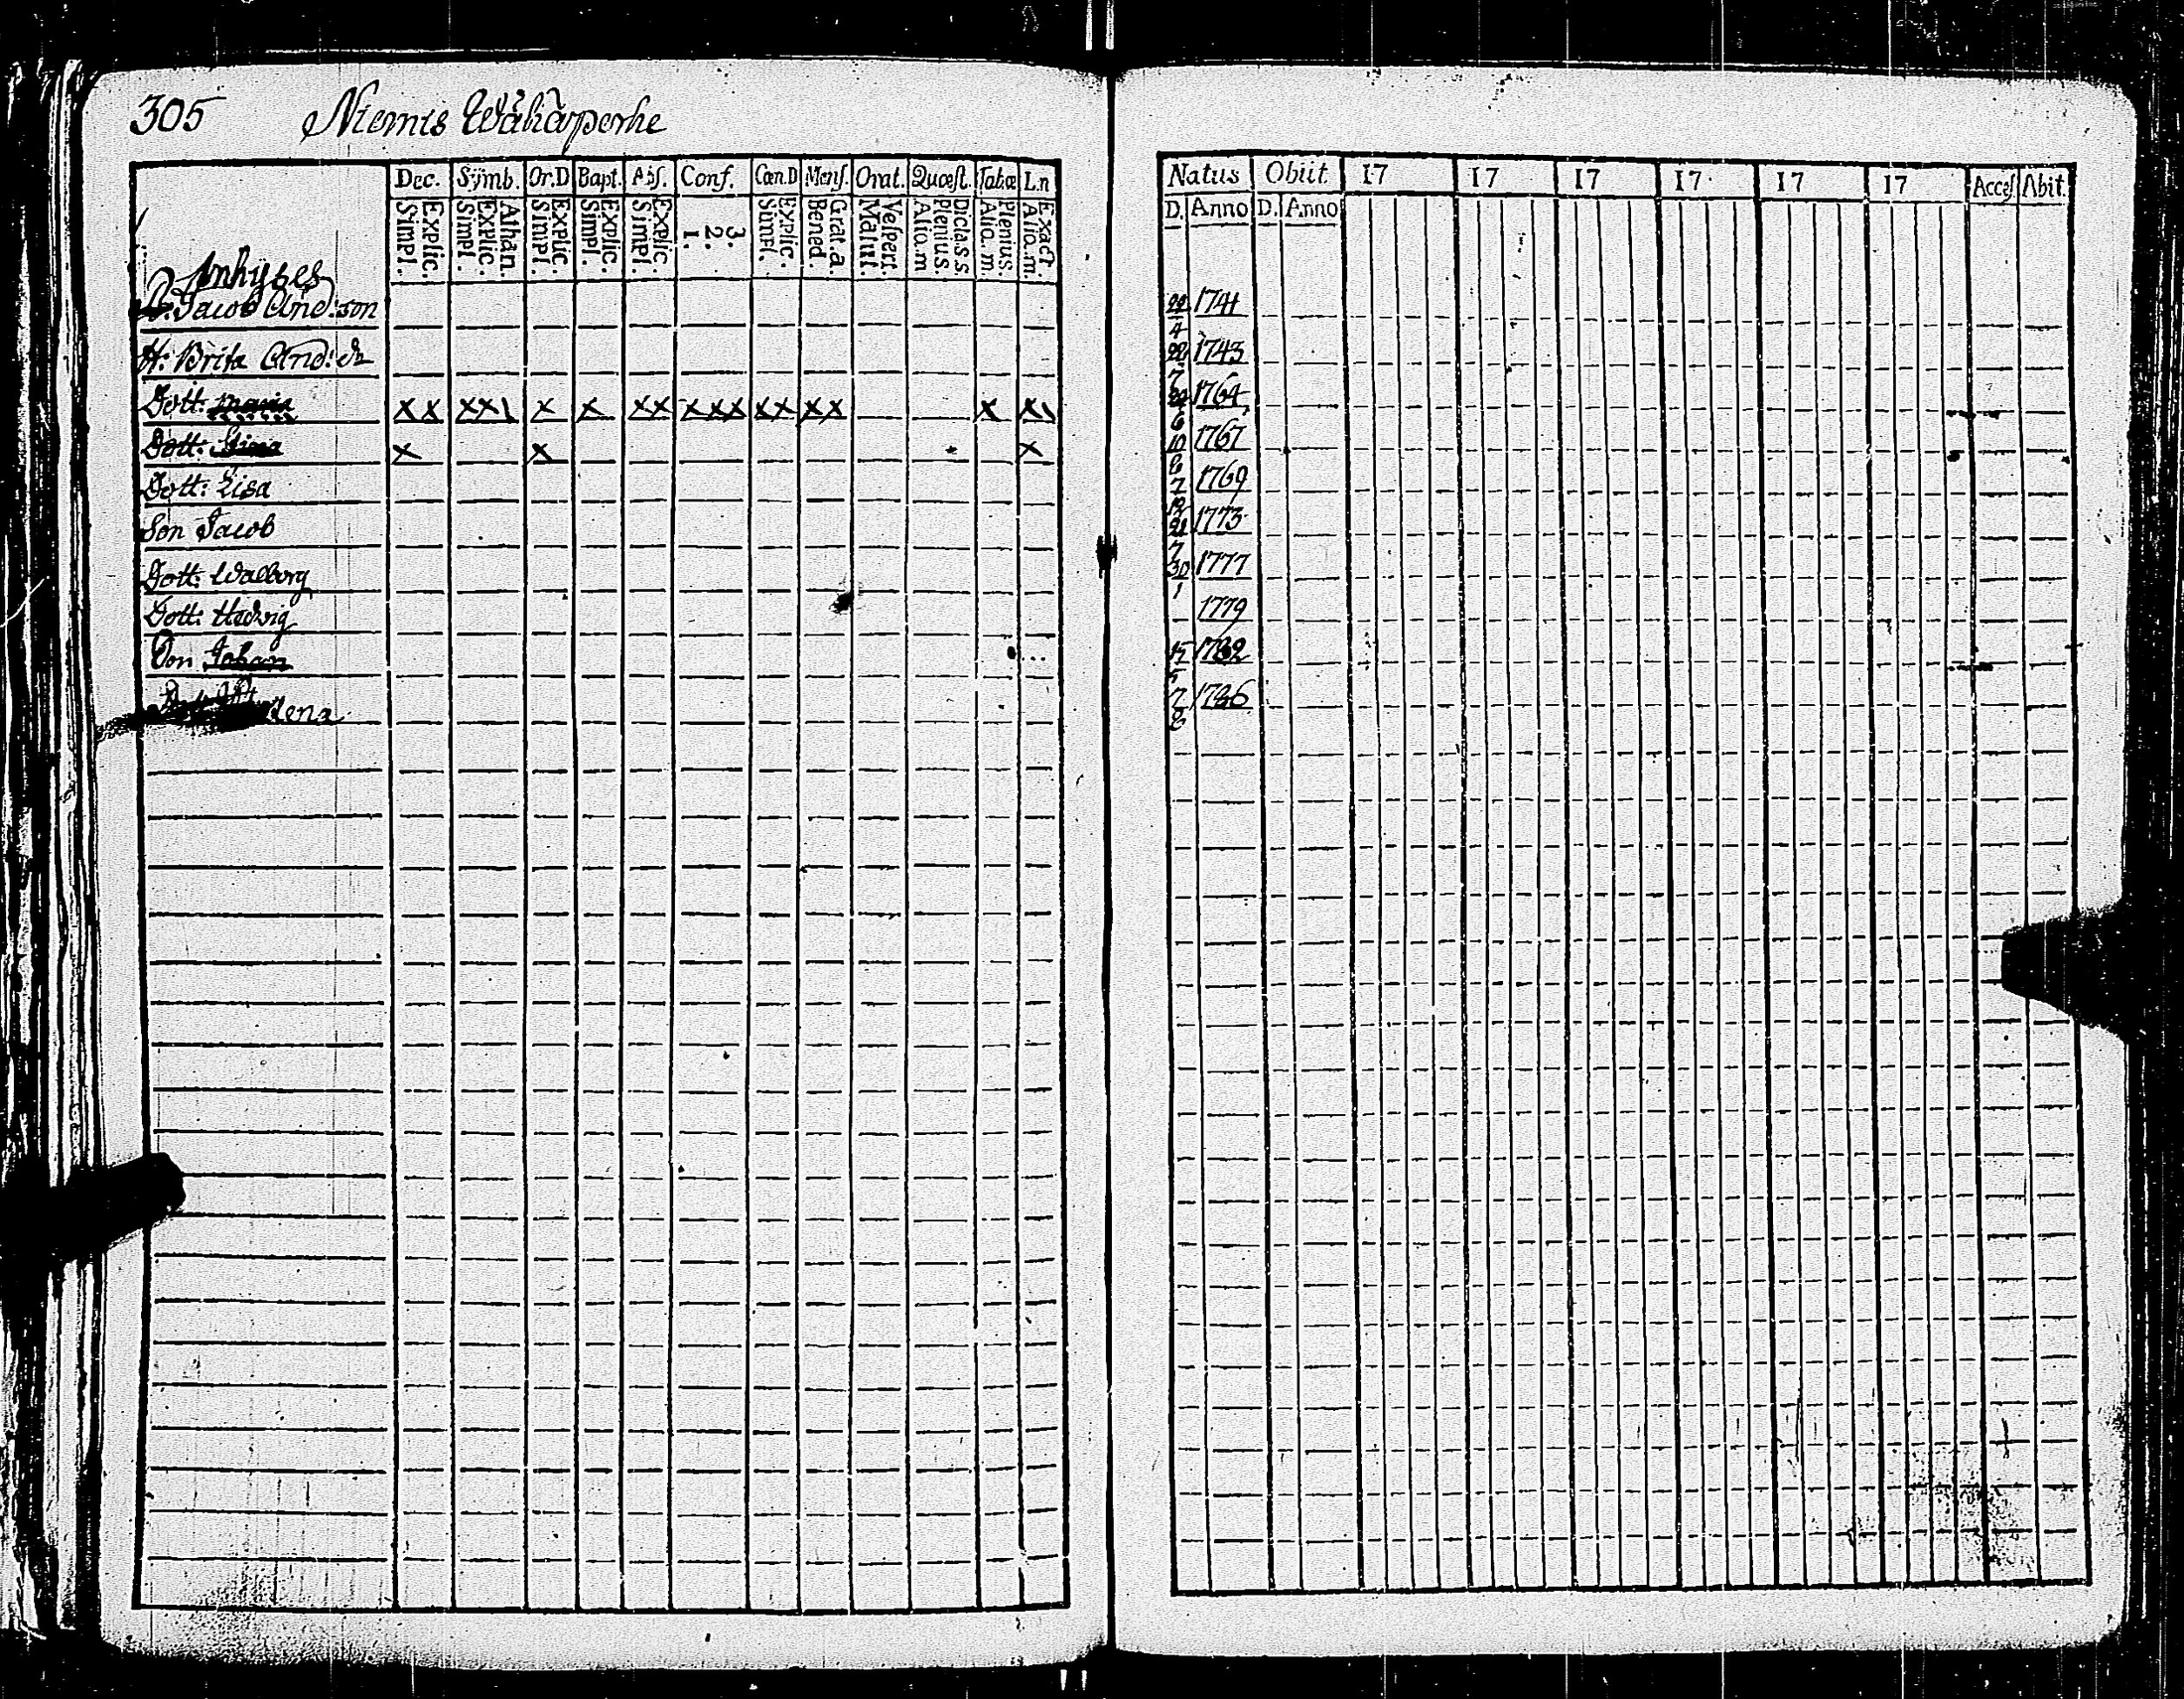 305 Niemis Wähäperhe
Dec. Symb. Or.D Bapt. Abs. Conf. Cœn.D Mens. Orat. Quæst. Tab.œ L.n
Explic. Simpl. Athan. Explic. Simpl. Explic. Simpl. Explic. Simpl. Explic. Simpl. 3. 2. 1. Explic. Simpl. Grat.a. Bened. Vespert. Matut. Dicta.s.s. Plenius. Alio.m Plenius. Alio.m. Exact. Alio.m.
Inhyses
Jacob And:son
H: Brita And: dr
Dott: Maria x x x x \ x x x x x x x x x x x x x \
Dott: Stina x x x
Dott: Lisa
Son Jacob
Dott: Walborg
Dott: Hedvig
Son Johan
lena
Natus Obiit 17 17 17 17 17 17 Acces Abit.
D. Anno D. Anno
22/4 1741
22/7 1743
24/6 1764
10/8 1767
7/12 1769
21/7 1773
30/1 1777
1779
15/5 1782
7/8 1786